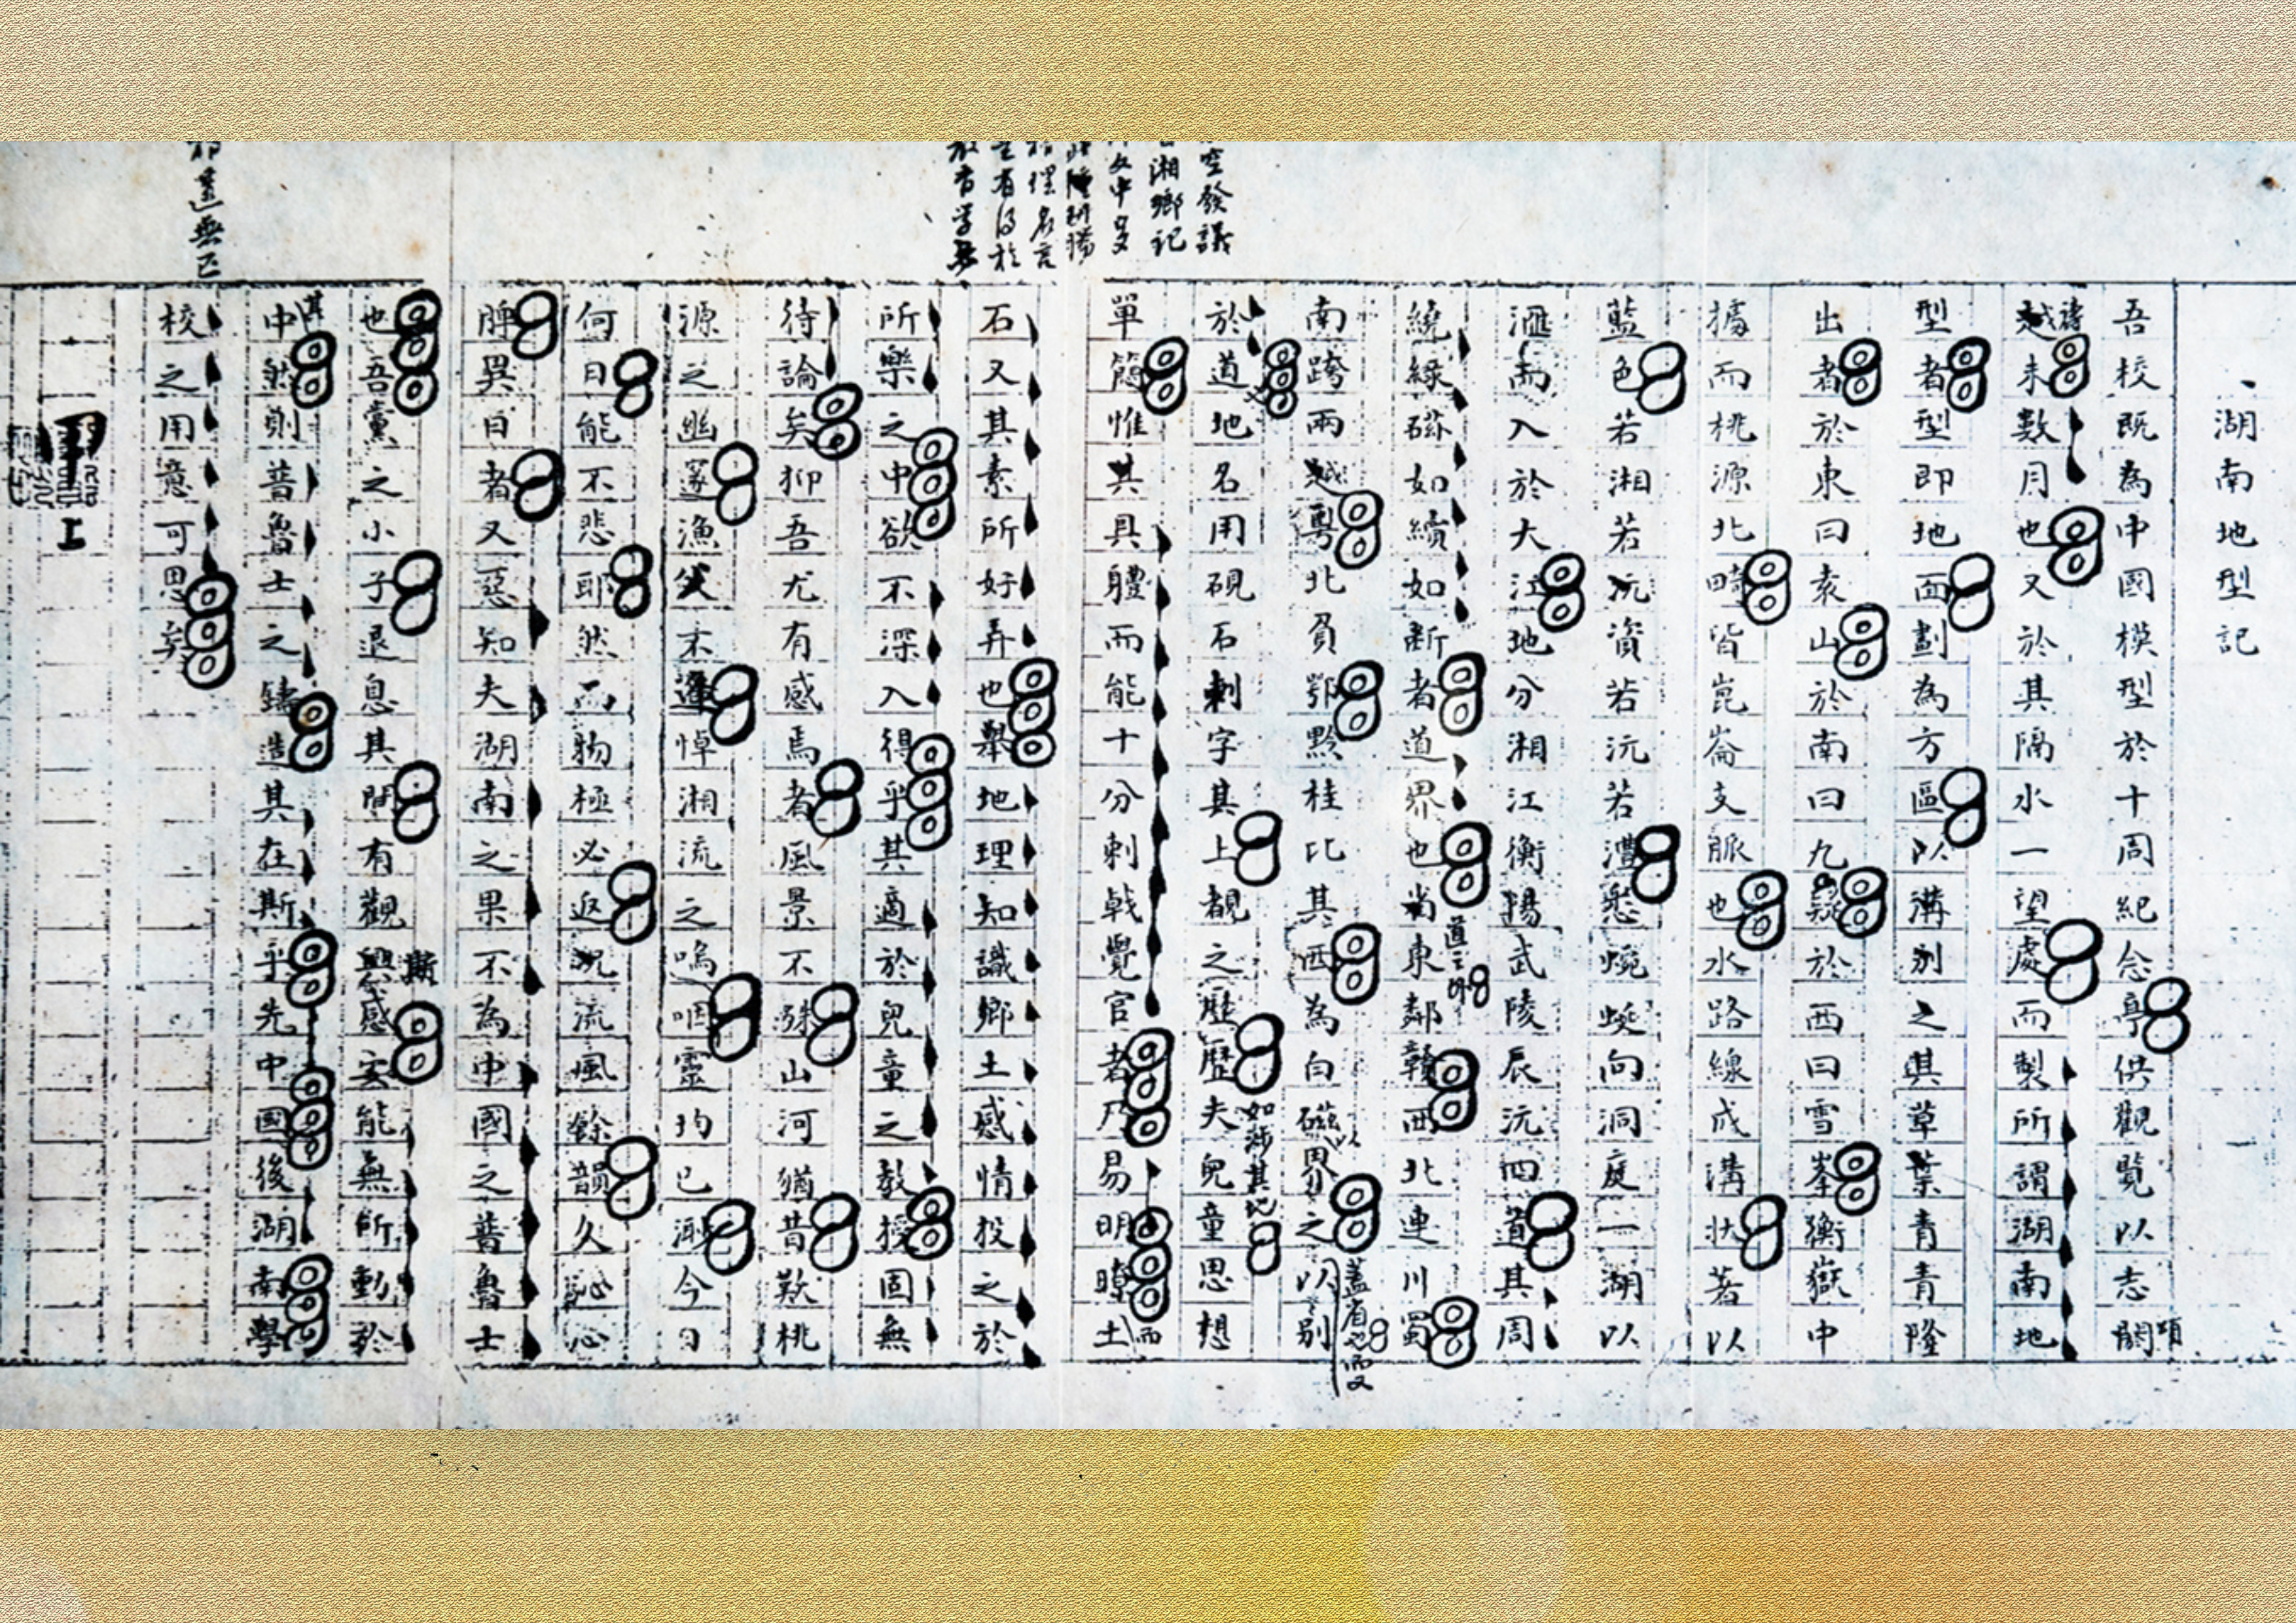 湖南地型記
吾校既為中國模型於十周紀念亭供觀覽以志
未數月也又於其隔水一望處而製所謂湖南地
型者型即地面劃為方區以溝別之其草葉青青隆
出者於東曰袁山於南曰九疑於西曰雪峯衡嶽中
據而桃源北峙皆崑崙支脈也水路線成溝狀著以
藍色若湘若沅資若沅若澧悉蜿蜒向洞庭一湖以
滙而入於大江地分湘江衡陽武陵辰沅四道其周
繞綠磁如繽如斷者道界也東鄰贛西北連川蜀
道之外
南跨兩粵北貧鄂黔桂比其西為白磁界之以別
蓋省也而又
於道地名用硯石刺字其上覩之歷歷夫兒童思想
如涉其地
單簡惟其具體而能十分刺戟覺官者乃易明瞭土
而
石又其素所好弄也舉地理知識鄉土感情投之於
所樂之中欲不深入得乎其適於兒童之教授固無
待論矣抑吾尤有感焉者風景不殊山河猶昔歎桃
源之幽邃漁父不逢悼湘流之嗚咽靈均已渺今日
何日能不悲耶然而物極必返況流風餘韻久沁心
脾異日者又惡知夫湖南之果不為中國之普魯士
也吾黨之小子退息其間有觀感安能無所動於
斯
中然則普魯士之鑄造其在斯乎先中國後湖南學
其
校之用意可思矣
甲
上
空發議
湘鄉記
文中多
遠無已